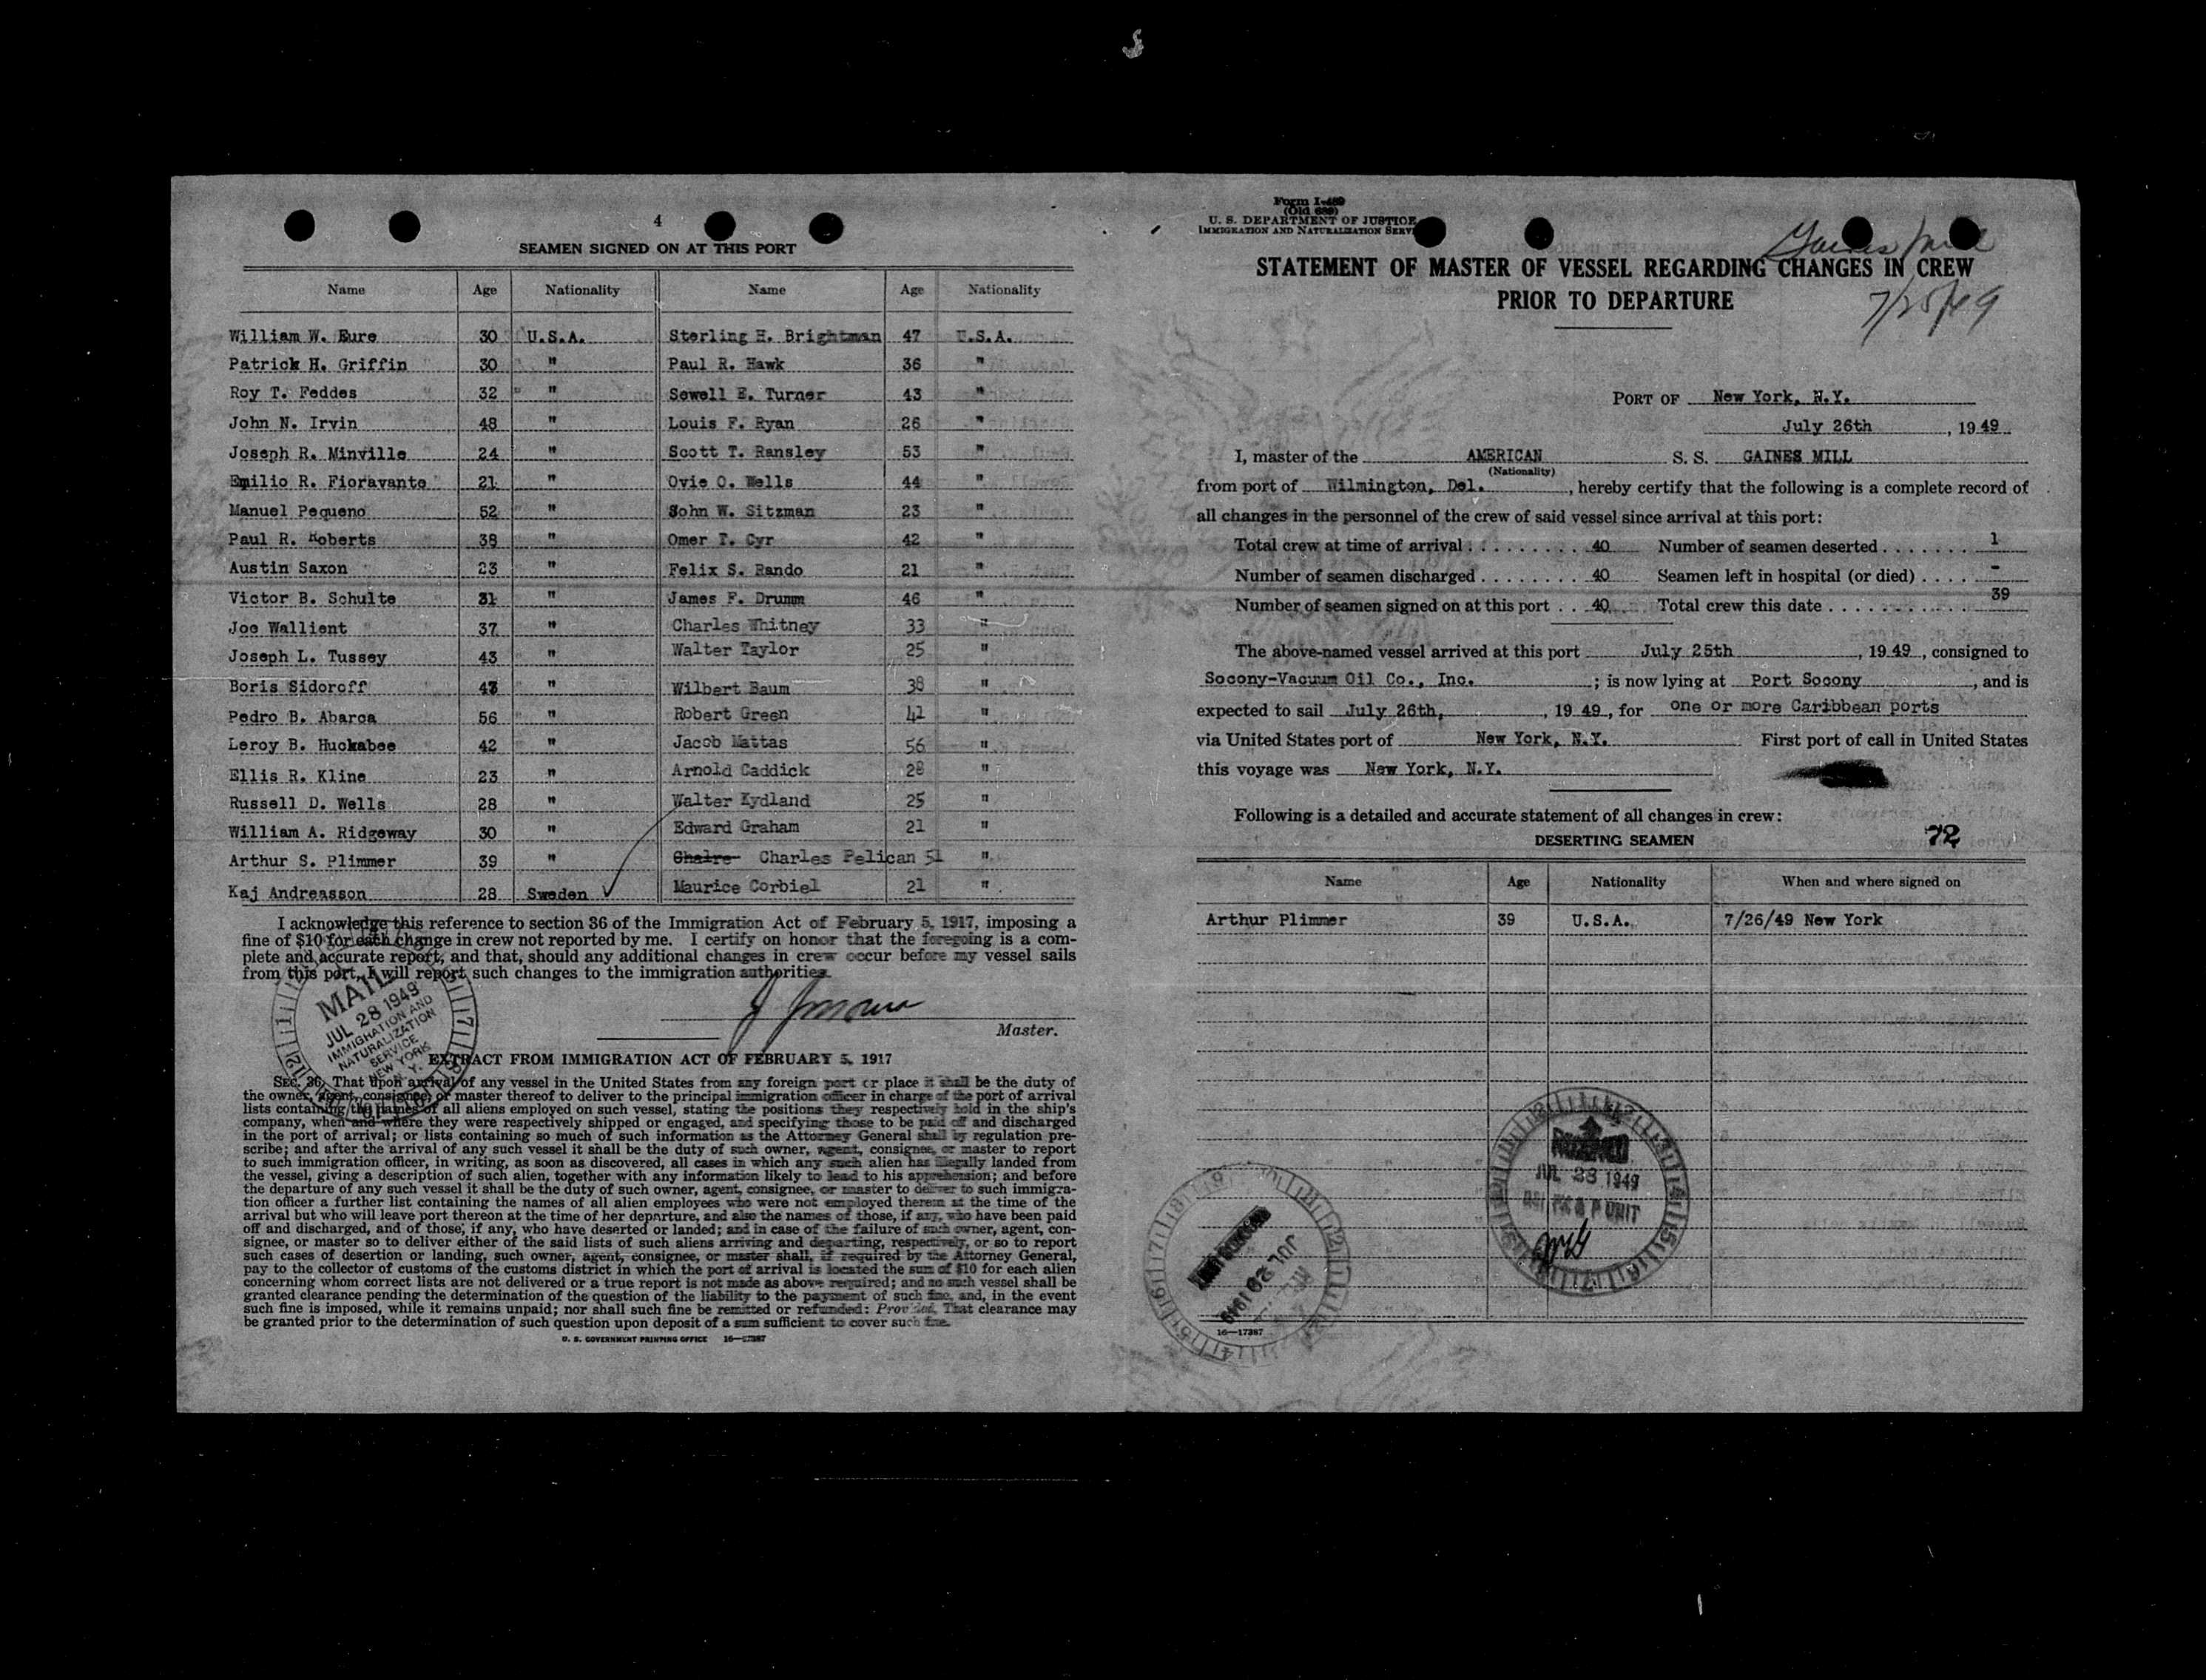 4
SEAMEN SIGNED ON AT THIS PORT
Name Age Nationality Name Age Nationality
William W. Eure 30 U.S.A. Sterling H. Brightman 47 U.S.A.
Patrick H. Griffin 30 " Paul R. Hawk 36 "
Roy T. Feddes 32 " Sewell E. Turner 43 "
John N. Irvin 48 " Louis F. Ryan 26 "
Joseph R. Minville 24 " Scott T. Ransley 53 "
Emilio R. Fioravante 21 " Ovie O. Wells 44 "
Manuel Pequeno 52 " John W. Sitzman 23 "
Paul R. Roberts 38 " Omer T. Cyr 42 "
Austin Saxon 23 " Felix S. Rando 21 "
Victor B. Schulte 31 " James F. Drumm 46 "
Joe Wallient 37 " Charles Whitney 33 "
Joseph L. Tussey 43 " Walter Taylor 25 "
Boris Sidoroff 43 " Wilbert Baum 38 "
Pedro B. Abarca 56 " Robert Green 41 "
Leroy B. Huckabee 42 " Jacob Mattas 56 "
Ellis R. Kline 23 " Arnold Caddick 28 "
Russell D. Wells 28 " Walter Kydland 25 "
William A. Ridgeway 30 " Edward Graham 21 "
Arthur S. Plimmer 39 " Chalre Charles Pelican 51 "
Kaj Andreasson 28 Sweden Maurice Corbiel 21 "
I acknowledge this reference to section 36 of the Immigration Act of February 5, 1917, imposing a
fine of $10 for each change in crew not reported by me. I certify on honor that the foregoing is a com-
plete and accurate report, and that, should any additional changes in crew occur before my vessel sails
from this port, I will report such changes to the immigration authorities.
Master.
MAILED
JUL 28 1949
IMMIGRATION AND
NATURALIZATION
SERVICE
NEW YORK
N. Y.
EXTRACT FROM IMMIGRATION ACT OF FEBRUARY 5, 1917
SEC. 36. That upon arrival of any vessel in the United States from any foreign port or place it shall be the duty of
the owner, agent, consignee, or master thereof to deliver to the principal immigration officer in charge of the port of arrival
lists containing the names of all aliens employed on such vessel, stating the positions they respectively hold in the ship's
company, when and where they were respectively shipped or engaged, and specifying those to be paid off and discharged
in the port of arrival; or lists containing so much of such information as the Attorney General shall by regulation pre-
scribe; and after the arrival of any such vessel it shall be the duty of such owner, agent, consignee, or master to report
to such immigration officer, in writing, as soon as discovered, all cases in which any such alien has illegally landed from
the vessel, giving a description of such alien, together with any information likely to lead to his apprehension; and before
the departure of any such vessel it shall be the duty of such owner, agent, consignee, or master to deliver to such immigra-
tion officer a further list containing the names of all alien employees who were not employed therein at the time of the
arrival but who will leave port thereon at the time of her departure, and also the names of those, if any, who have been paid
off and discharged, and of those, if any, who have deserted or landed; and in case of the failure of such owner, agent, con-
signee, or master so to deliver either of the said lists of such aliens arriving and departing, respectively, or so to report
such cases of desertion or landing, such owner, agent, consignee, or master shall, if required by the Attorney General,
pay to the collector of customs of the customs district in which the port of arrival is located the sum of $10 for each alien
concerning whom correct lists are not delivered or a true report is not made as above required; and no such vessel shall be
granted clearance pending the determination of the question of the liability to the payment of such fine, and, in the event
such fine is imposed, while it remains unpaid; nor shall such fine be remitted or refunded: Provided, That clearance may
be granted prior to the determination of such question upon deposit of a sum sufficient to cover such fine.
U. S. GOVERNMENT PRINTING OFFICE 16—17387
Form I-489
(Old 689)
U. S. DEPARTMENT OF JUSTICE
IMMIGRATION AND NATURALIZATION SERVI
Gaines Mill
STATEMENT OF MASTER OF VESSEL REGARDING CHANGES IN CREW
PRIOR TO DEPARTURE
7/25/49
PORT OF New York, N.Y.
July 26th, 1949
I, master of the AMERICAN S. S. GAINES MILL
(Nationality)
from port of Wilmington, Del., hereby certify that the following is a complete record of
all changes in the personnel of the crew of said vessel since arrival at this port:
Total crew at time of arrival . . . . . . . . . 40 Number of seamen deserted . . . . . . . 1
Number of seamen discharged . . . . . . . . 40 Seamen left in hospital (or died) . . . . -
Number of seamen signed on at this port . . 40 Total crew this date . . . . . . . . . . . 39
The above-named vessel arrived at this port July 25th, 1949, consigned to
Socony-Vacuum Oil Co., Inc. ; is now lying at Port Socony, and is
expected to sail July 26th, 1949, for one or more Caribbean ports
via United States port of New York, N.Y. First port of call in United States
this voyage was New York, N.Y.
Following is a detailed and accurate statement of all changes in crew:
DESERTING SEAMEN 72
Name Age Nationality When and where signed on
Arthur Plimmer 39 U.S.A. 7/26/49 New York
JUL 28 1949
JUL 28 1949
16—17387